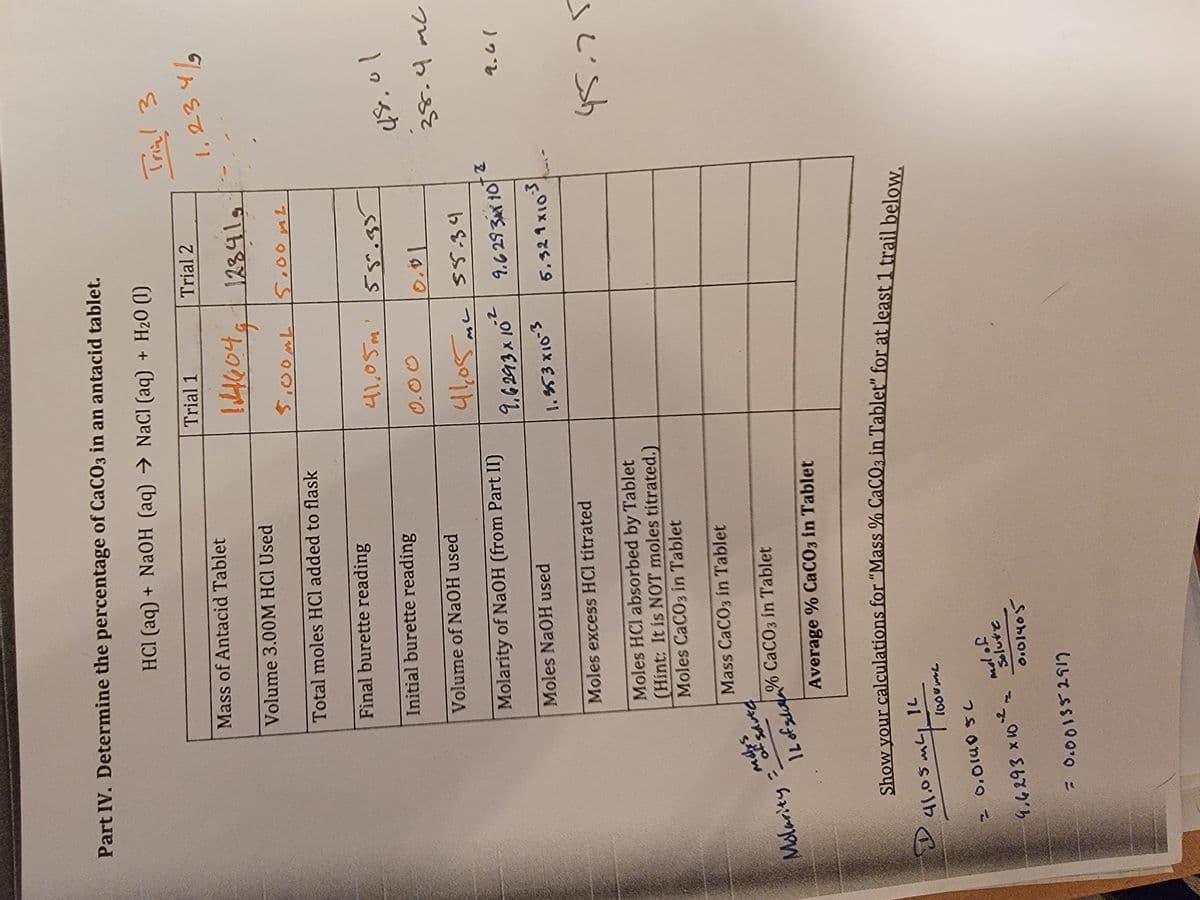 Part IV. Determine the percentage of CaCO3 in an antacid tablet.
HCl (aq) + NaOH (aq) → NaCl (aq) + H2O (l)
Trial 3
Trial 1 Trial 2
1.2341g
Mass of Antacid Tablet 12341g
Volume 3.00M HCl Used 5.00mL 5.00 mL
Total moles HCl added to flask
Final burette reading 41.05m 55.35 48.01
Initial burette reading 0.00 0.01 38.4 mL
Volume of NaOH used 41.05 mL 55.34
Molarity of NaOH (from Part II) 9.6293 x 10-2 9.6293 x 10-2 9.61
Moles NaOH used 5.329 x 10-3
Moles excess HCl titrated 45.75
Moles HCl absorbed by Tablet
(Hint: It is NOT moles titrated.)
Moles CaCO3 in Tablet
Mass CaCO3 in Tablet
Molarity =
% CaCO3 in Tablet
Average % CaCO3 in Tablet
Show your calculations for "Mass % CaCO3 in Tablet" for at least 1 trail below.
① 41.05 mL 1L
1000mL
mol of
9.6293 x 10-2 = solute
= 0.00135 2917